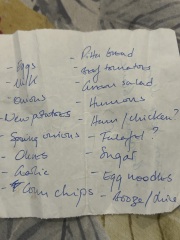 - Eggs
- Milk
- Onions
- New potatoes
- Spring onions
- Olives
- Garlic
- Corn chips
- Pitta bread
- tomatoes
- salad
- Humous
- Ham/chicken?
- Falafel?
- Sugar
- Egg noodles
- Booze/